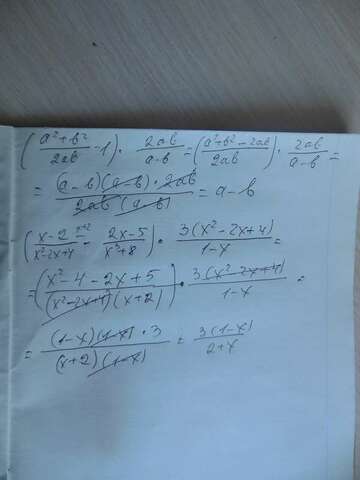 (a²+b²/2ab - 1) · 2ab/a-b = (a²+b²-2ab/2ab) · 2ab/a-b =
= (a-b)(a-b)·2ab/2ab(a-b) = a-b
(x-2^{x+2}/x²-2x+4 - 2x-5/x³+8) · 3(x²-2x+4)/1-x =
= (x²-4-2x+5/(x²-2x+4)(x+2)) · 3(x²-2x+4)/1-x =
= (1-x)(1-x)·3/(x+2)(1-x) = 3(1-x)/2+x